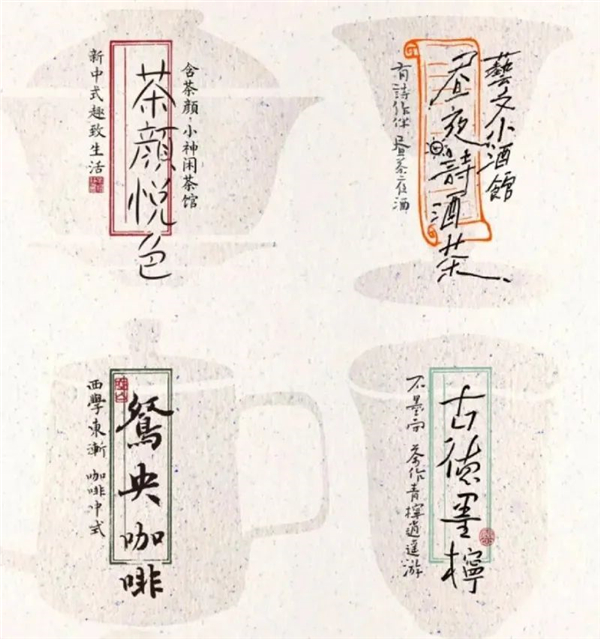 含茶顏,小神闲茶馆
茶顏悦色
新中式趣致生活
藝文小酒館
昼夜詩酒茶
有詩作伴 昼茶夜酒
鴛央咖啡
西學東漸 咖啡中式
古德墨檸
不墨守 茶作青檸逍遥游